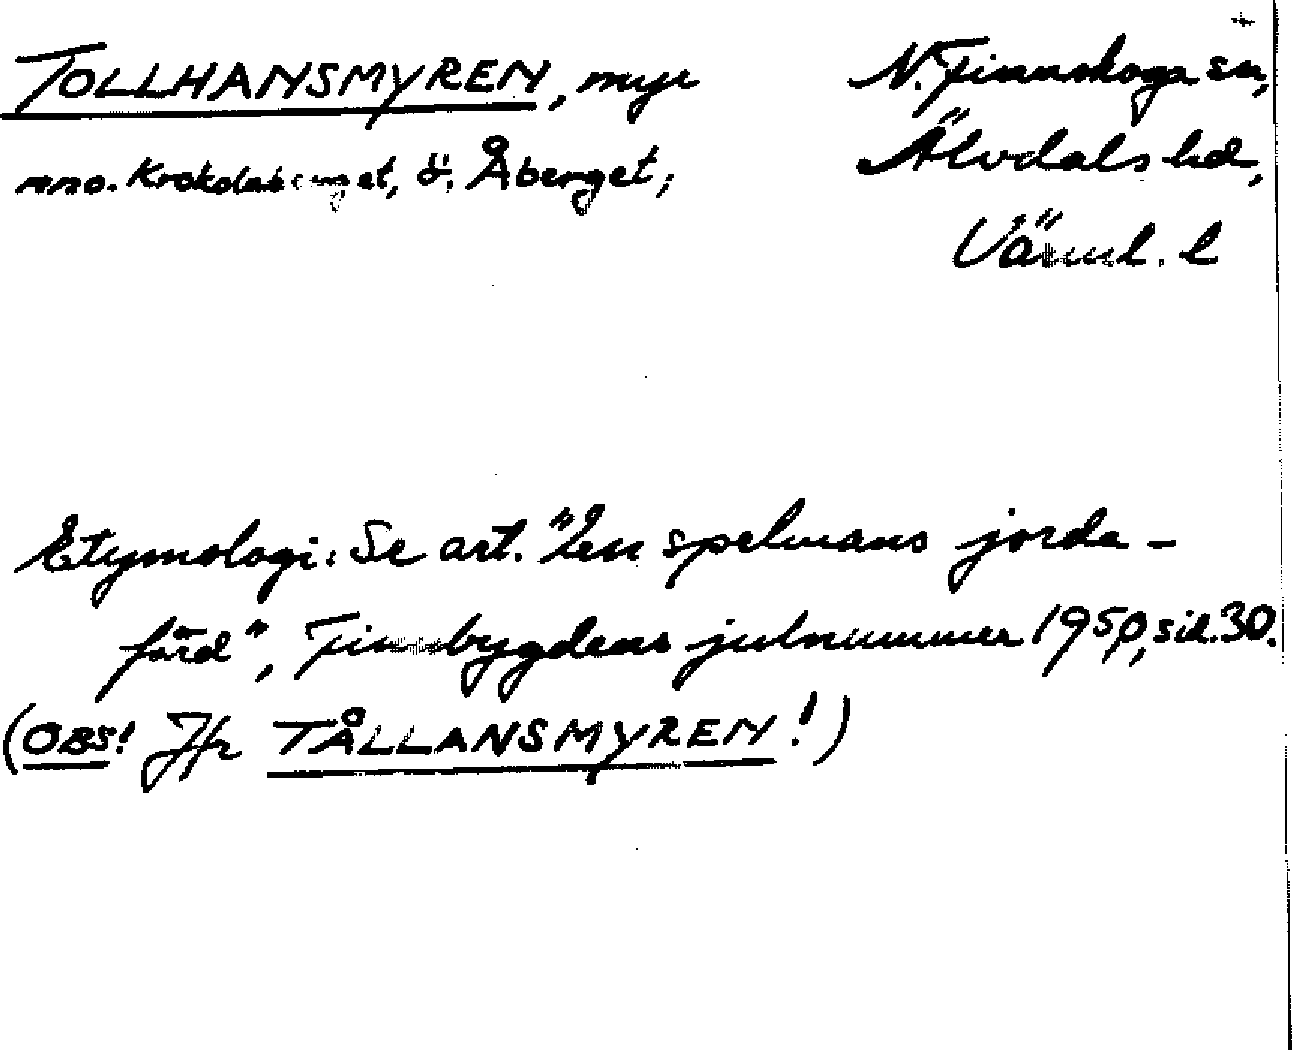 TOLLHANSMYREN, myr
nno. Krokolaberget, ö. Åberget;
N. Finnskoga sn,
Älvdals hd,
Värml. l
Etymologi: Se art. "En spelmans jorda-
färd", Finnbygdens julnummer 1950, sid. 30.
(OBS! Jfr TÅLLANSMYREN!)